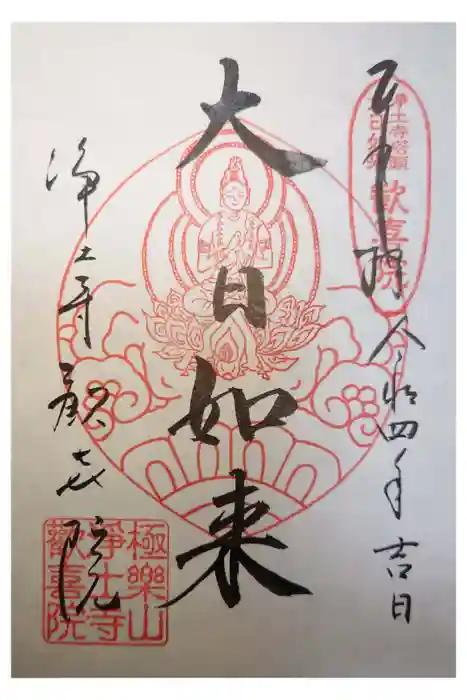 奉拝
令和四年吉日
歓喜院
大日如来
浄土寺歓喜院
極樂山
浄土寺
歡喜院